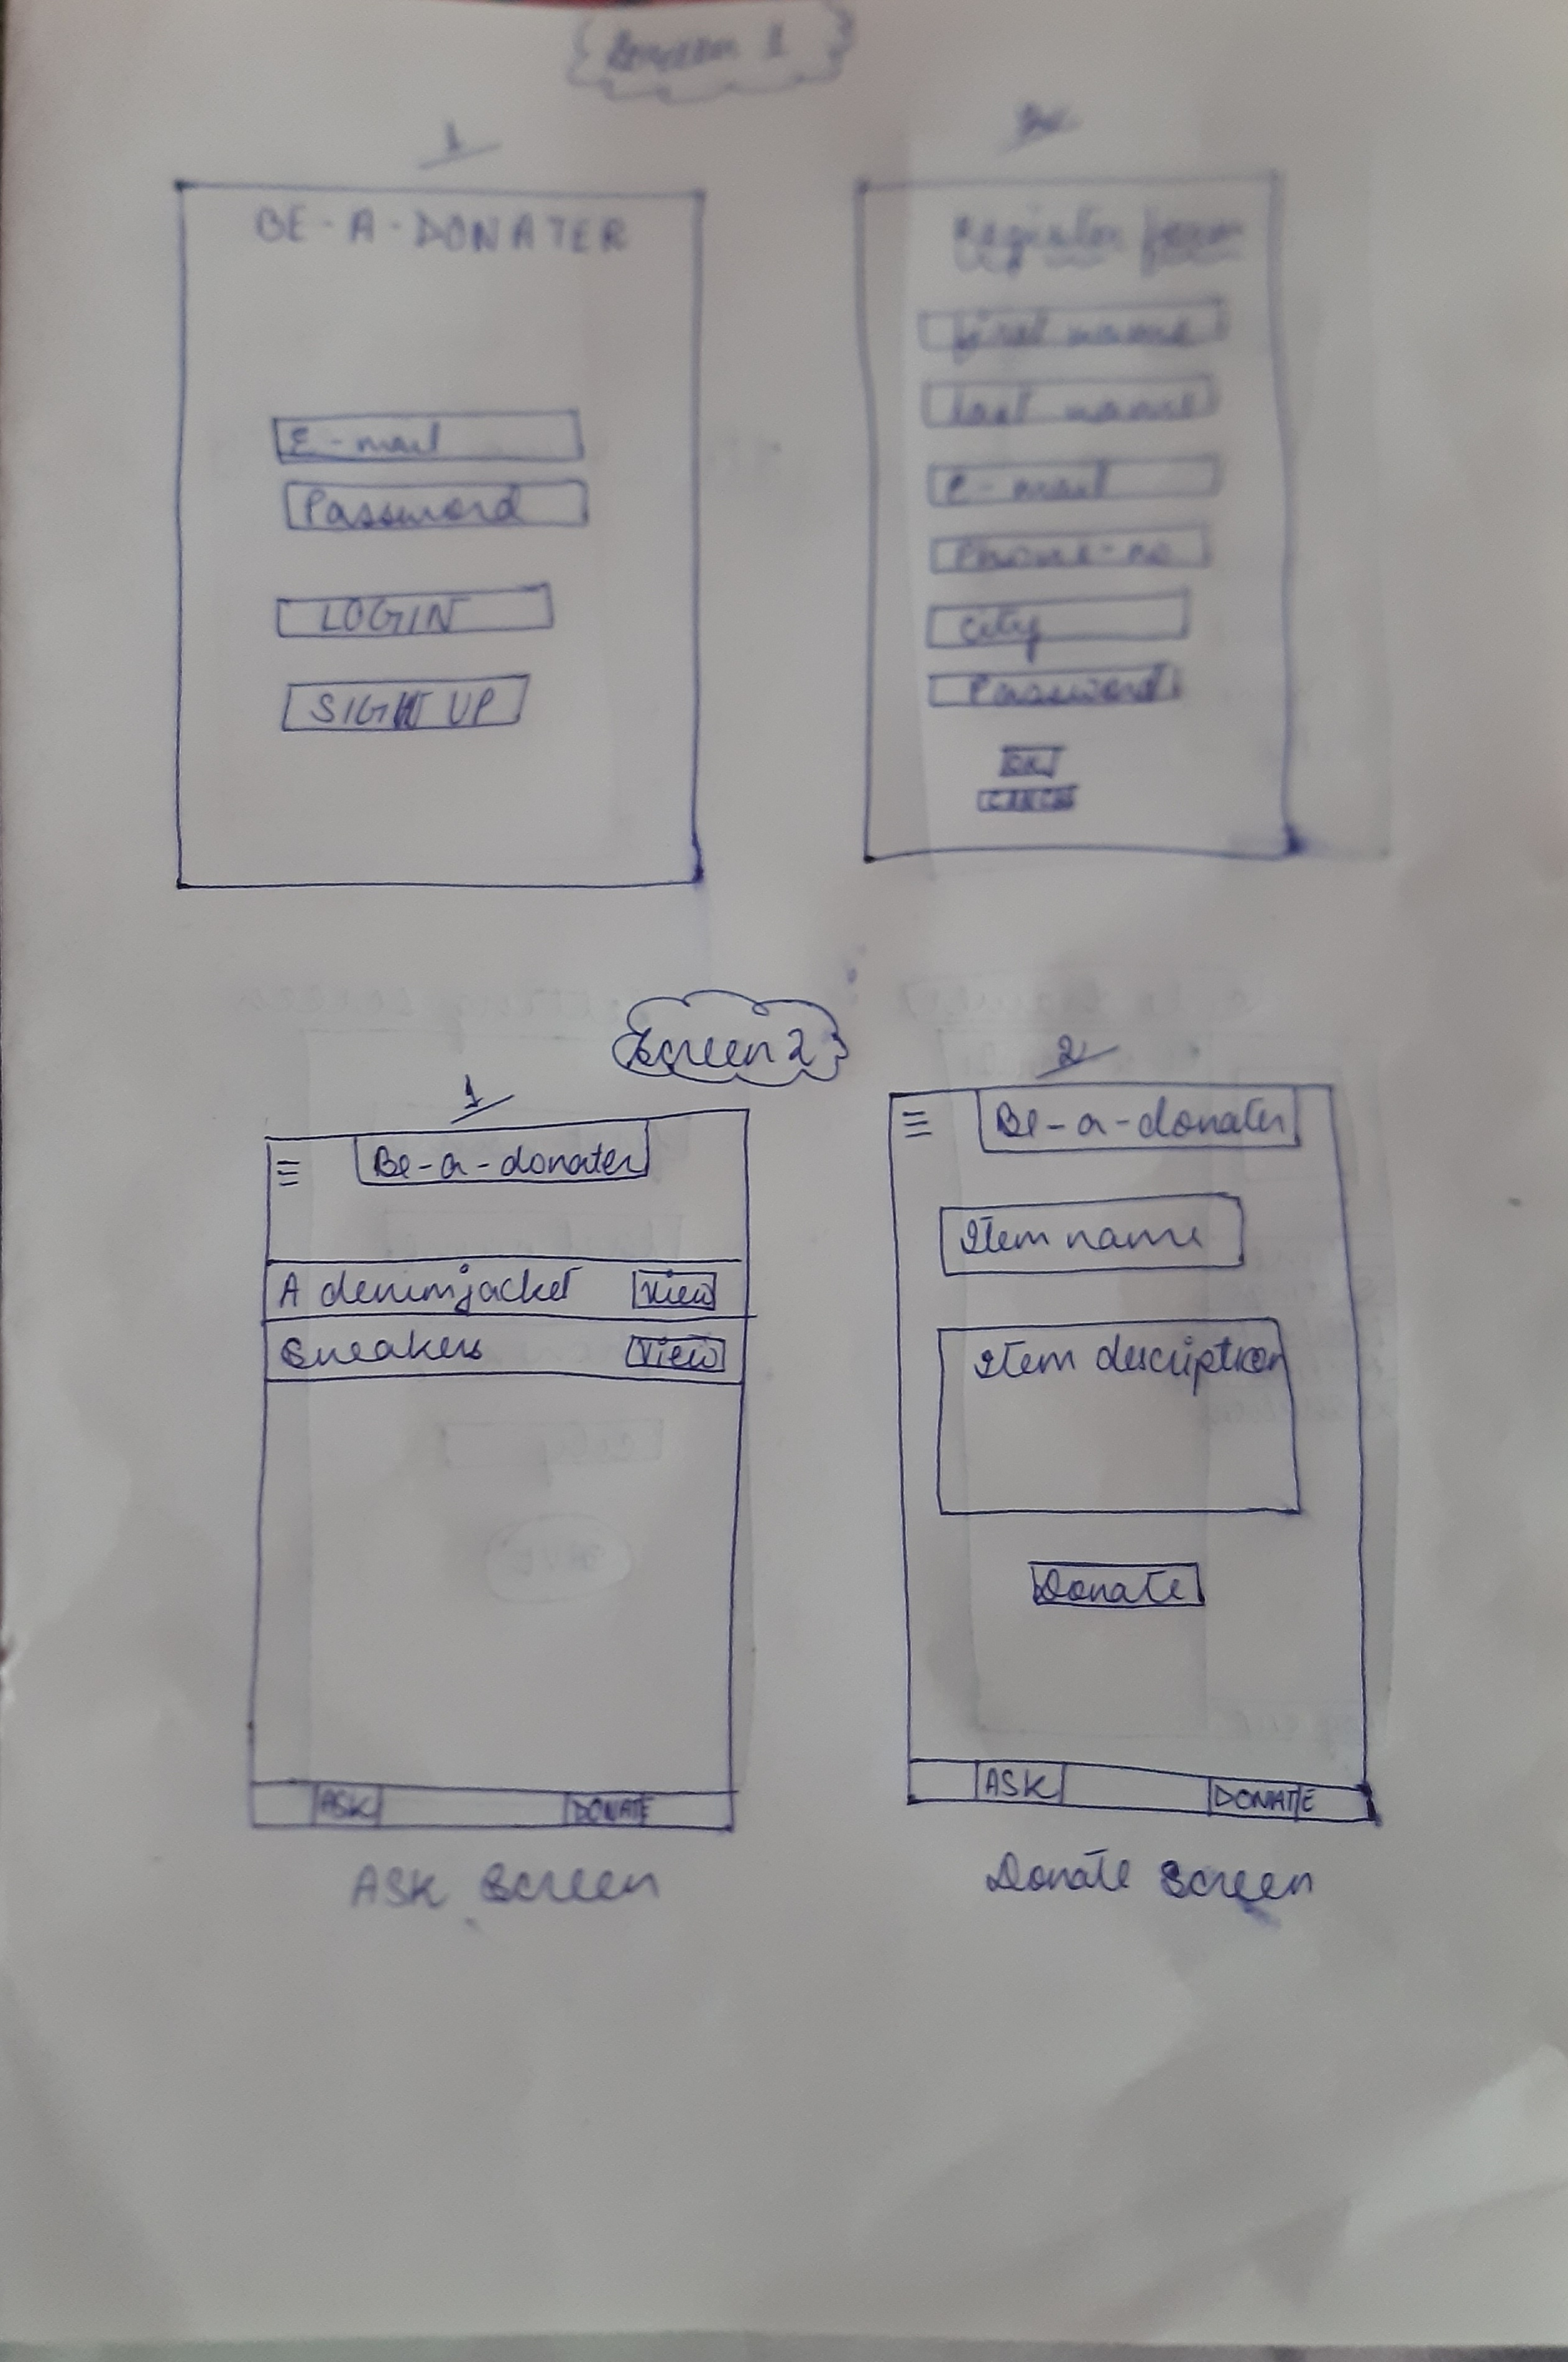 Screen 1
1
BE-A-DONATER
E-mail
Password
LOGIN
SIGN UP
2
Register form
first name
last name
e-mail
Phone-no
city
Password
OK
CANCEL
Screen 2
1
Be-a-donater
A denim jacket View
Sneakers View
ASK DONATE
ASK Screen
2
Be-a-donater
Item name
Item description
Donate
ASK DONATE
Donate Screen